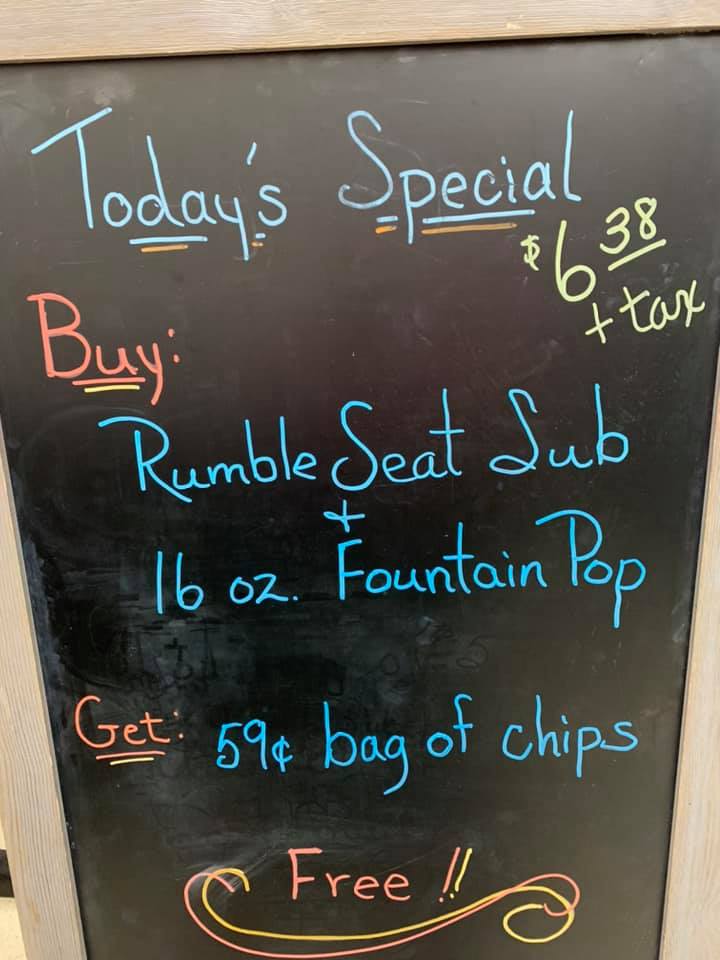 Today's Special
$6 38
+ tax
Buy:
Rumble Seat Sub
+
16 oz. Fountain Pop
Get: 59¢ bag of chips
Free !!